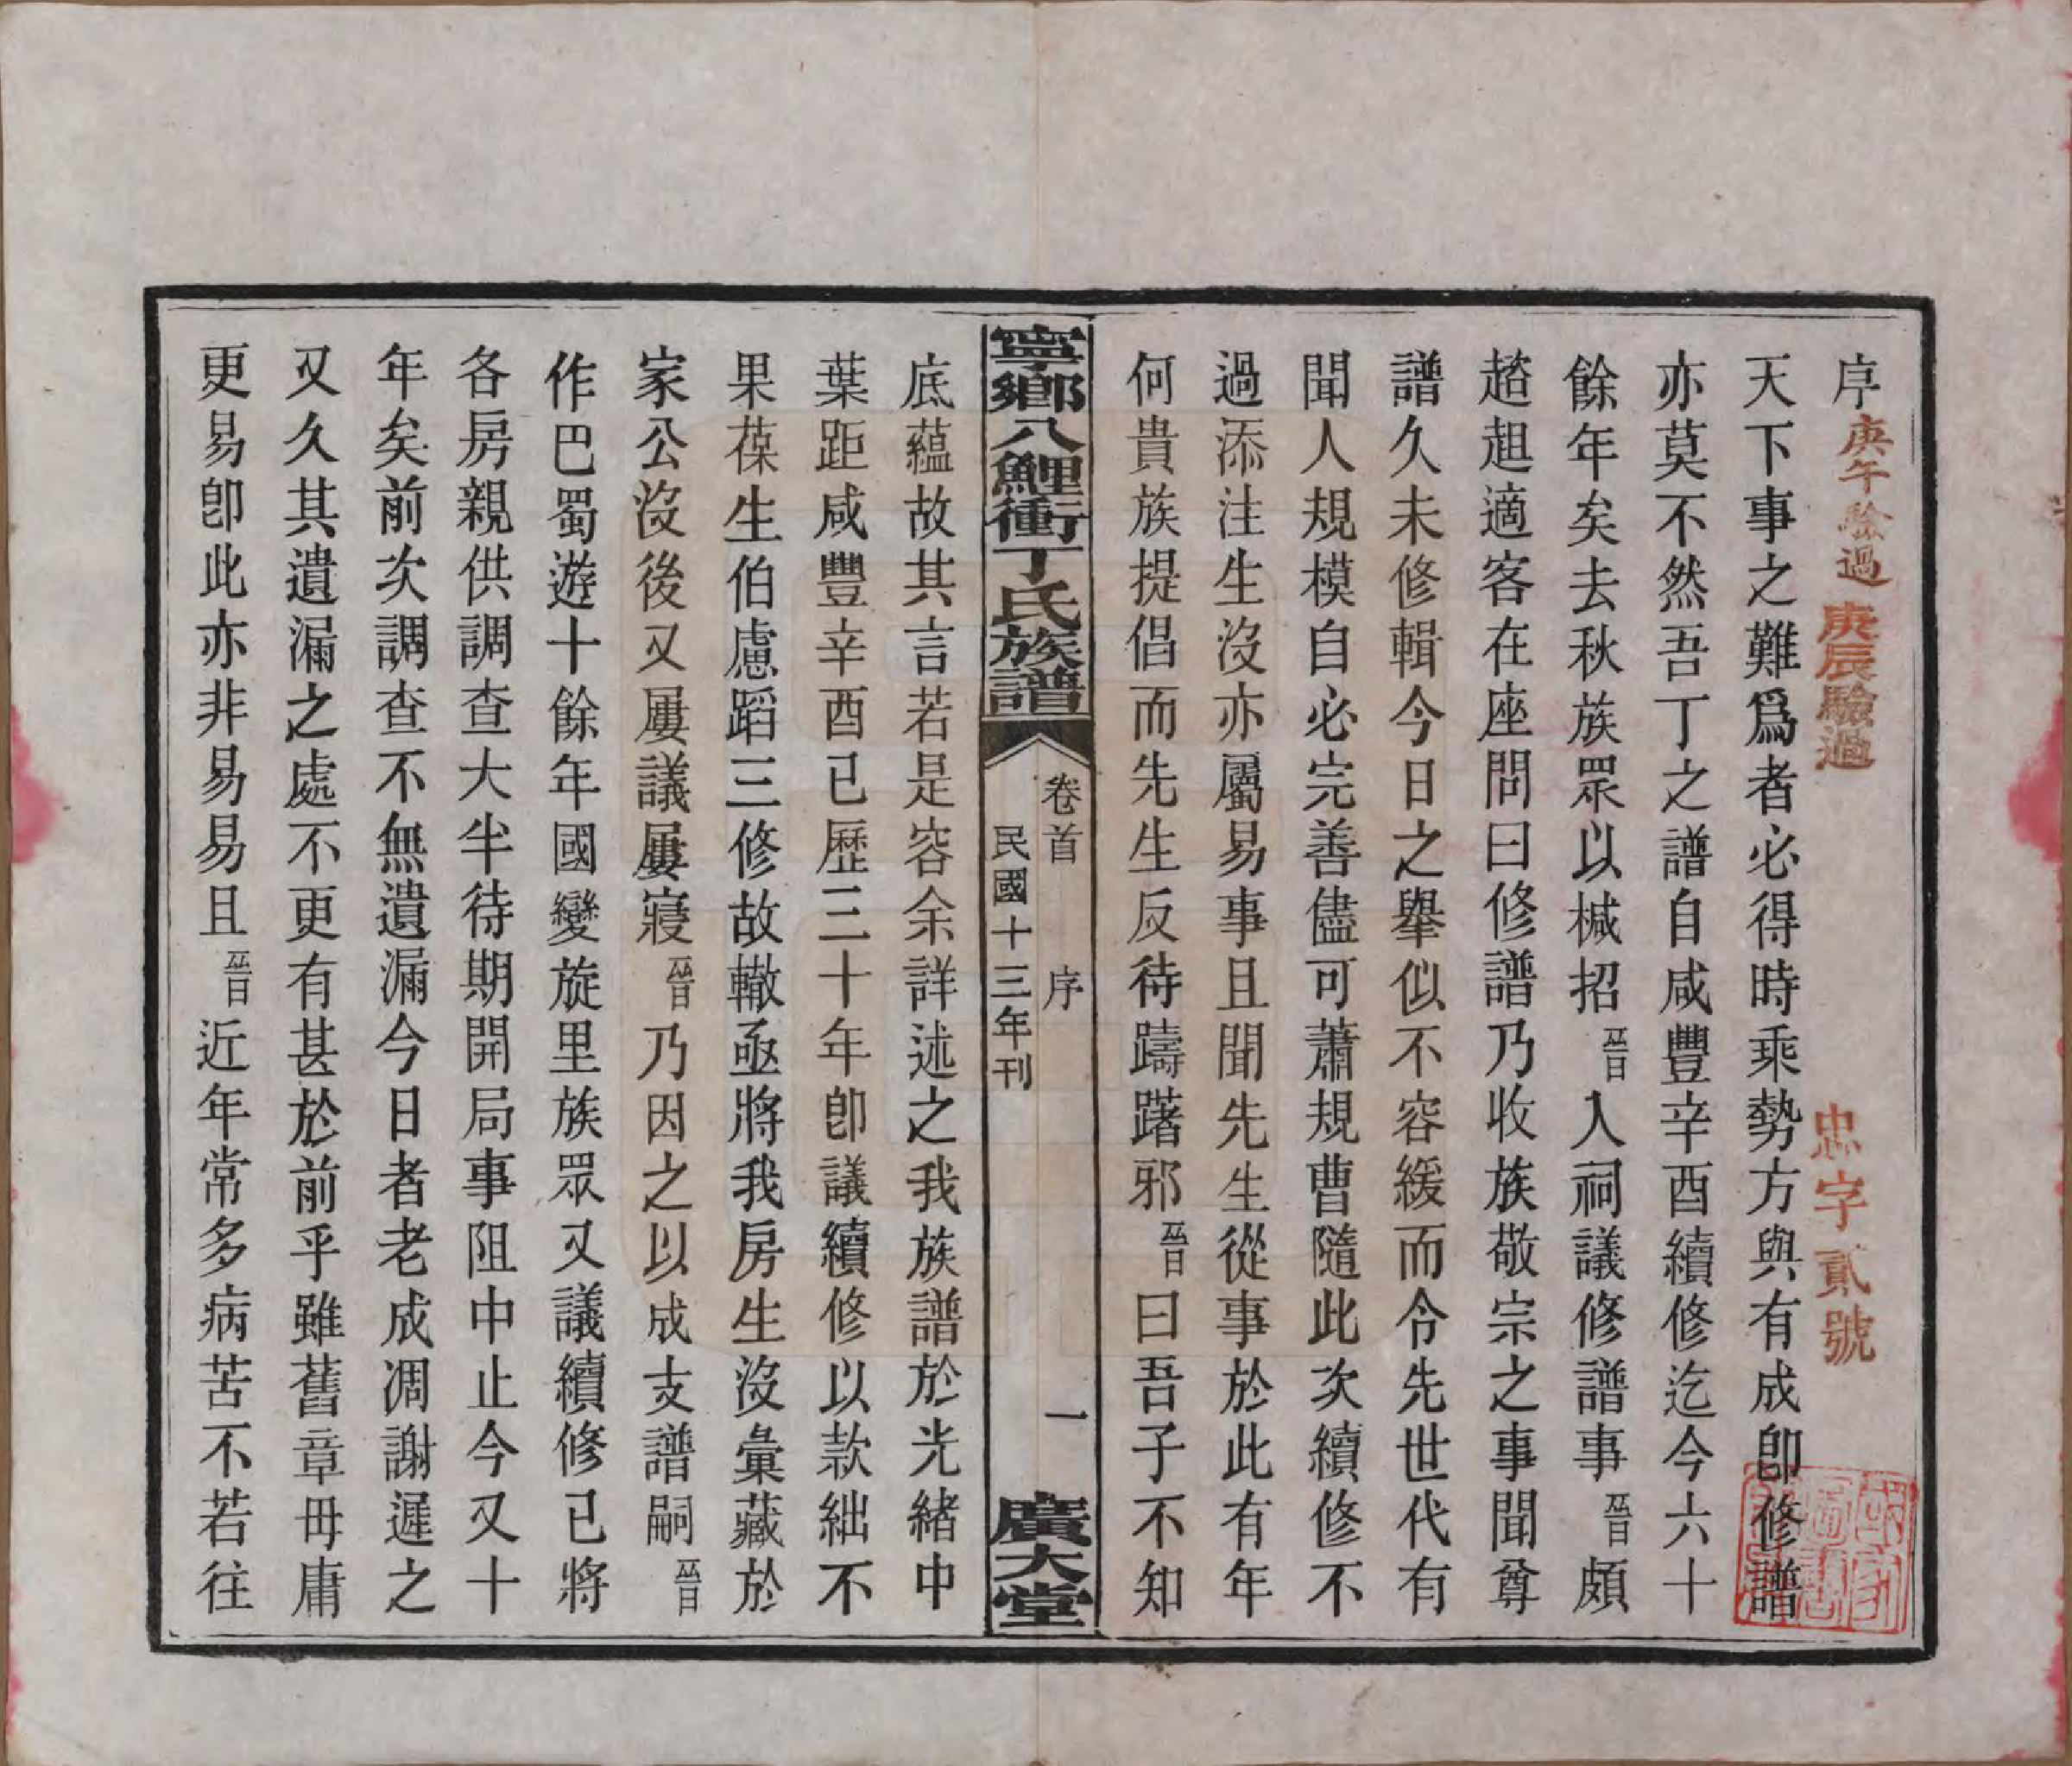 序
庚午驗過
庚辰驗過
忠字貳號
天下事之難爲者必得時乘勢方與有成卽修譜
亦莫不然吾丁之譜自咸豐辛酉續修迄今六十
餘年矣去秋族眾以椷招晉入祠議修譜事晉頗
趦趄適客在座問曰修譜乃收族敬宗之事聞尊
譜久未修輯今日之舉似不容緩而令先世代有
聞人規模自必完善儘可蕭規曹隨此次續修不
過添注生沒亦屬易事且聞先生從事於此有年
何貴族提倡而先生反待躊躇邪晉曰吾子不知
寧鄉八鯉衝丁氏族譜
卷首 序 一
民國十三年刊
廣大堂
底蘊故其言若是容余詳述之我族譜於光緒中
葉距咸豐辛酉已歷三十年卽議續修以款絀不
果葆生伯慮蹈三修故轍亟將我房生沒彙藏於
家公沒後又屢議屢寢晉乃因之以成支譜嗣晉
作巴蜀遊十餘年國變旋里族眾又議續修已將
各房親供調查大半待期開局事阻中止今又十
年矣前次調查不無遺漏今日者老成凋謝遲之
又久其遺漏之處不更有甚於前乎雖舊章毋庸
更易卽此亦非易易且晉近年常多病苦不若往